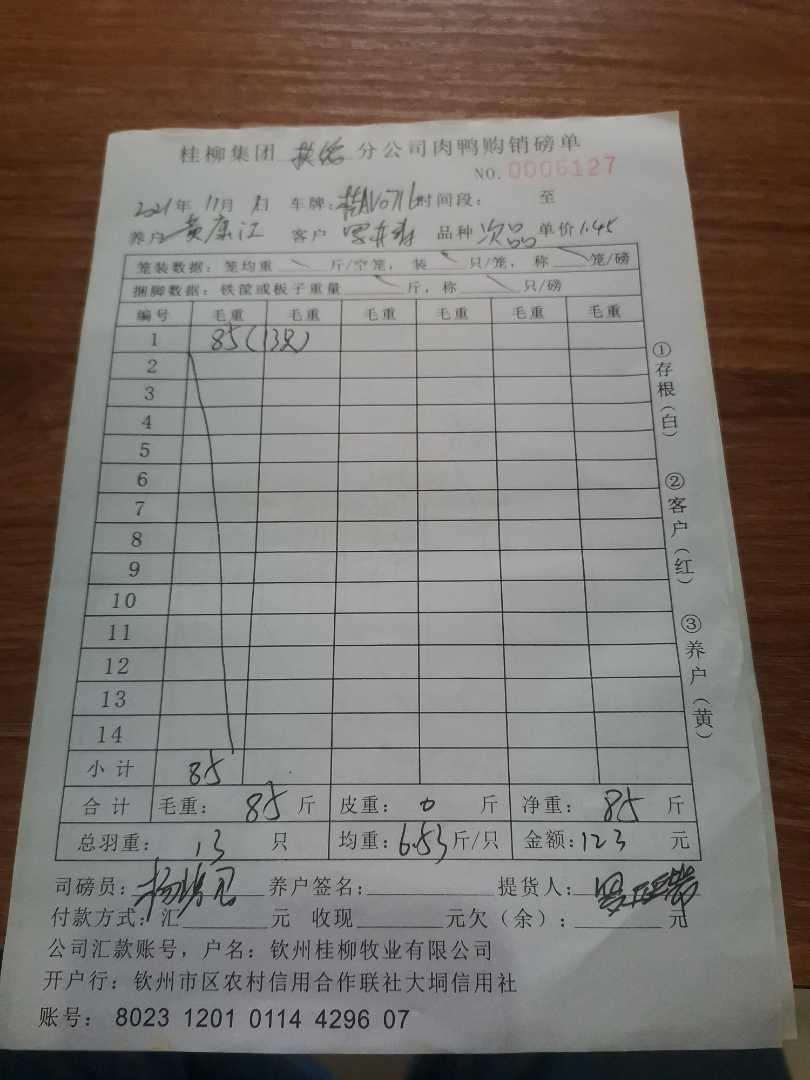 桂柳集团 分公司肉鸭购销磅单
NO. 0006127
2021年 11月 日 车牌: 桂AV0716 时间段: 至
养户 黄康江 客户 品种 次品 单价 1.45
笼装数据: 笼均重 斤/空笼, 装 只/笼, 称 笼/磅
捆脚数据: 铁筐或板子重量 斤, 称 只/磅
编号 毛重 毛重 毛重 毛重 毛重 毛重
1 85(13只)
2
3
4
5
6
7
8
9
10
11
12
13
14
小计 85
合计 毛重: 85 斤 皮重: 0 斤 净重: 85 斤
总羽重: 13 只 均重: 6.53 斤/只 金额: 123 元
司磅员: 养户签名: 提货人:
付款方式: 汇 元 收现 元欠(余): 元
公司汇款账号, 户名: 钦州桂柳牧业有限公司
开户行: 钦州市区农村信用合作联社大垌信用社
账号: 8023 1201 0114 4296 07
①存根(白)
②客户(红)
③养户(黄)